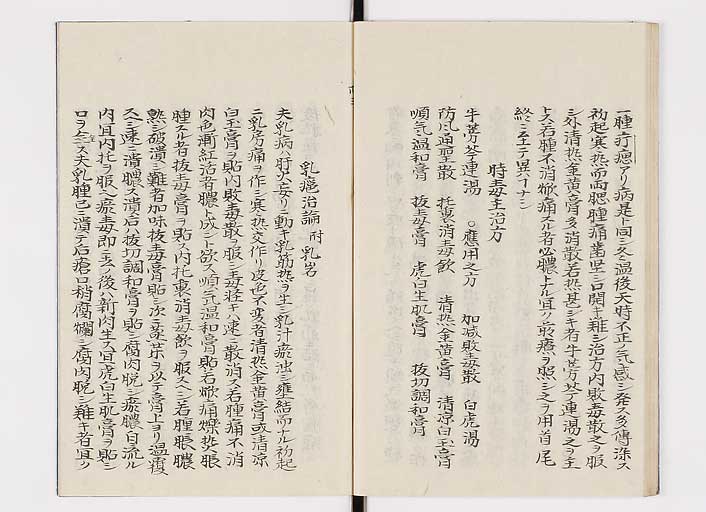 一種疔瘡アリ病是ト同シ冬温後天時不正ノ気感シ発ス多傳染ス
初起寒熱而両腮腫痛歯堅シ口開キ難シ治方内敗毒散之ヲ服
シ外清熱金黄膏多消散若熱甚シキ者牛蒡芩連湯之ヲ主
トス若腫不消焮痛スル者必膿トナル宜ク癰瘍ヲ照シ之ヲ用首尾
終ニ至テ異イナシ
時毒主治方
牛蒡芩連湯 ○應用之方 加減敗毒散 白虎湯
防風通聖散 托裏消毒飲 清熱金黄膏 清凉白玉膏
順気温和膏 抜毒膏 虎白生肌膏 抜切調和膏
乳癰治論 附 乳岩
夫乳病ハ肝火妄リニ動キ乳筋熱ヲ生シ乳汁瘀滞シ壅結而ナル初起
ニ乳房痛ヲ作シ寒熱交作リ皮色不変者清熱金黄膏或清凉
白玉膏ヲ貼内敗毒散ヲ服シ毒軽キハ速ニ散消ス若腫痛不消
肉色漸紅活者膿ト成ント欲ス順気温和膏貼若焮痛燥熱脹
腫スル者抜毒膏ヲ貼ス内托裏消毒飲ヲ服ス八ニ若腫脹膿
熟シ破潰シ難者加味抜毒膏貼シ次ニ薬ヲ以テ膏上ヨリ温覆
スレ速ニ潰膿ス潰后ハ抜切調和膏ヲ貼シ腐肉脱シ瘀膿自流ル
内宜内托ヲ服ス瘀毒即ニ去テ後ハ新肉生ス宜虎白生肌膏ヲ貼シ
口ヲ斂ス夫乳腫已ニ潰テ后瘡口稍腐爛シ腐肉脱シ難キ者宜ク